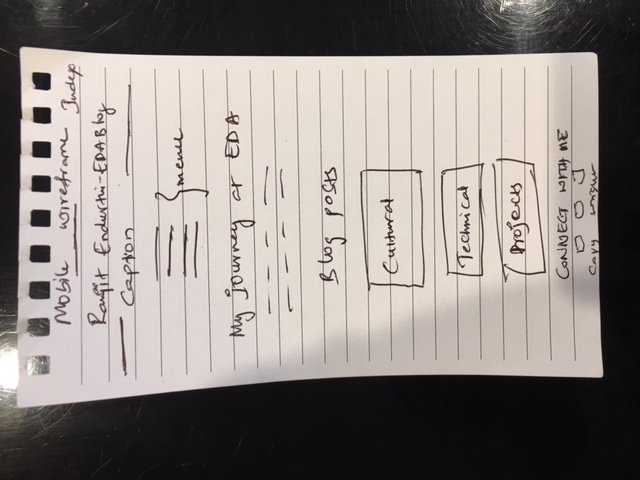 Mobile wireframe Index
Ranjit Endurthi-EDABlog
Caption
menu
My journey at EDA
Blog posts
Cultural
Technical
Projects
CONNECT WITH ME
Copy wright